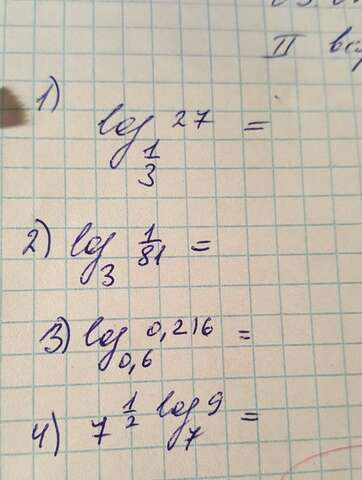 II
1) log_{1/3} 27 =
2) log_3 1/81 =
3) log_{0,6} 0,216 =
4) 7^{1/2 log_7 9} =